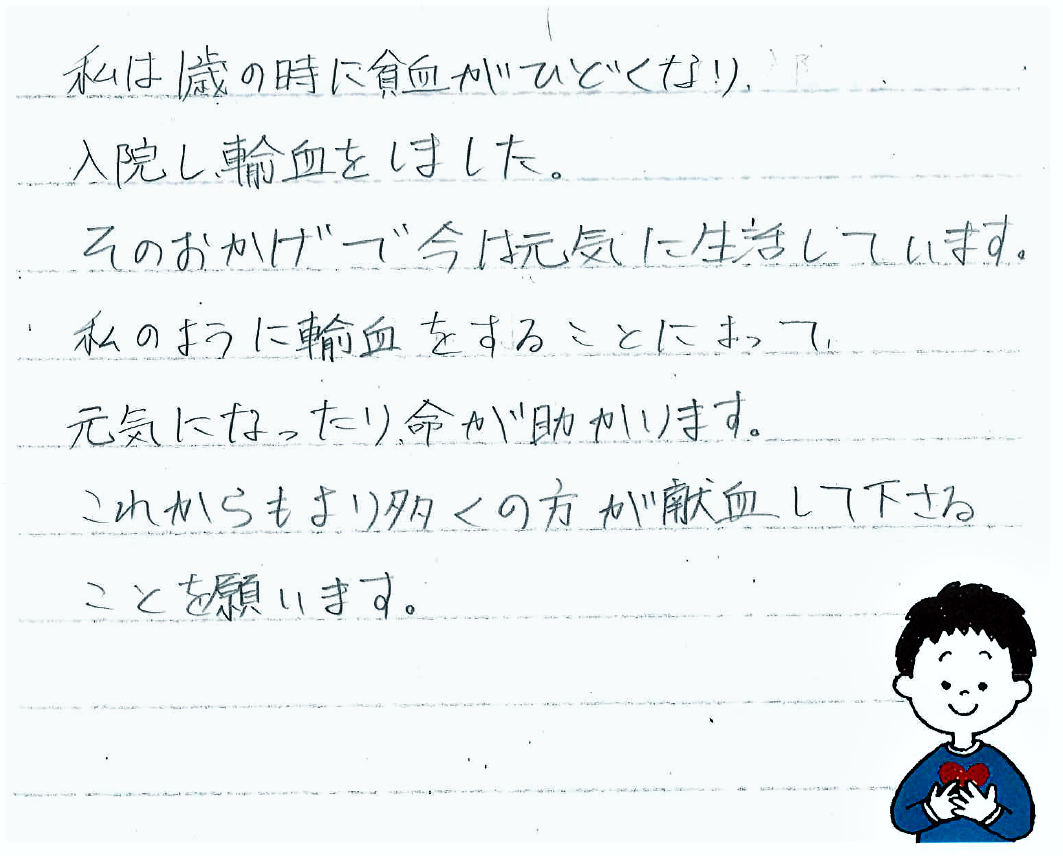 私は1歳の時に貧血がひどくなり、
入院し、輸血をしました。
そのおかげで今は元気に生活しています。
私のように輸血をすることによって、
元気になったり、命が助かります。
これからもより多くの方が献血して下さる
ことを願います。